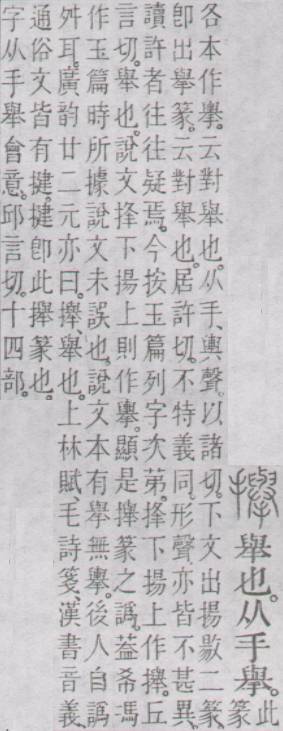 攑 舉也。从手舉。此篆
各本作擧。云對舉也。从手、輿聲。以諸切。下文出揚敭二篆、
卽出擧篆。云對舉也。居許切。不特義同。形聲亦皆不甚異。
讀許者往往疑焉。今按玉篇列字次第。捀下揚上作攑。丘
言切。舉也。說文捀下揚上則作擧。顯是攑篆之譌。葢希馮
作玉篇時所據說文未誤也。說文本有舉無擧。後人自譌
舛耳。廣韵廿二元亦曰。攑、舉也。上林賦、毛詩箋、漢書音義、
通俗文皆有揵。揵卽此攑篆也。
字从手舉會意。邱言切。十四部。